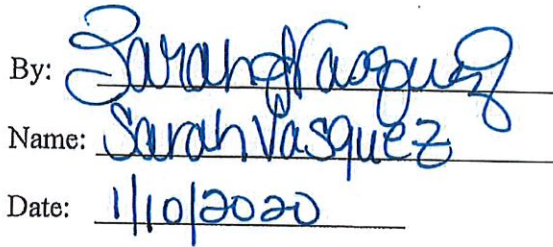 By: Sarah Vasquez
Name: Sarah Vasquez
Date: 1/10/2020